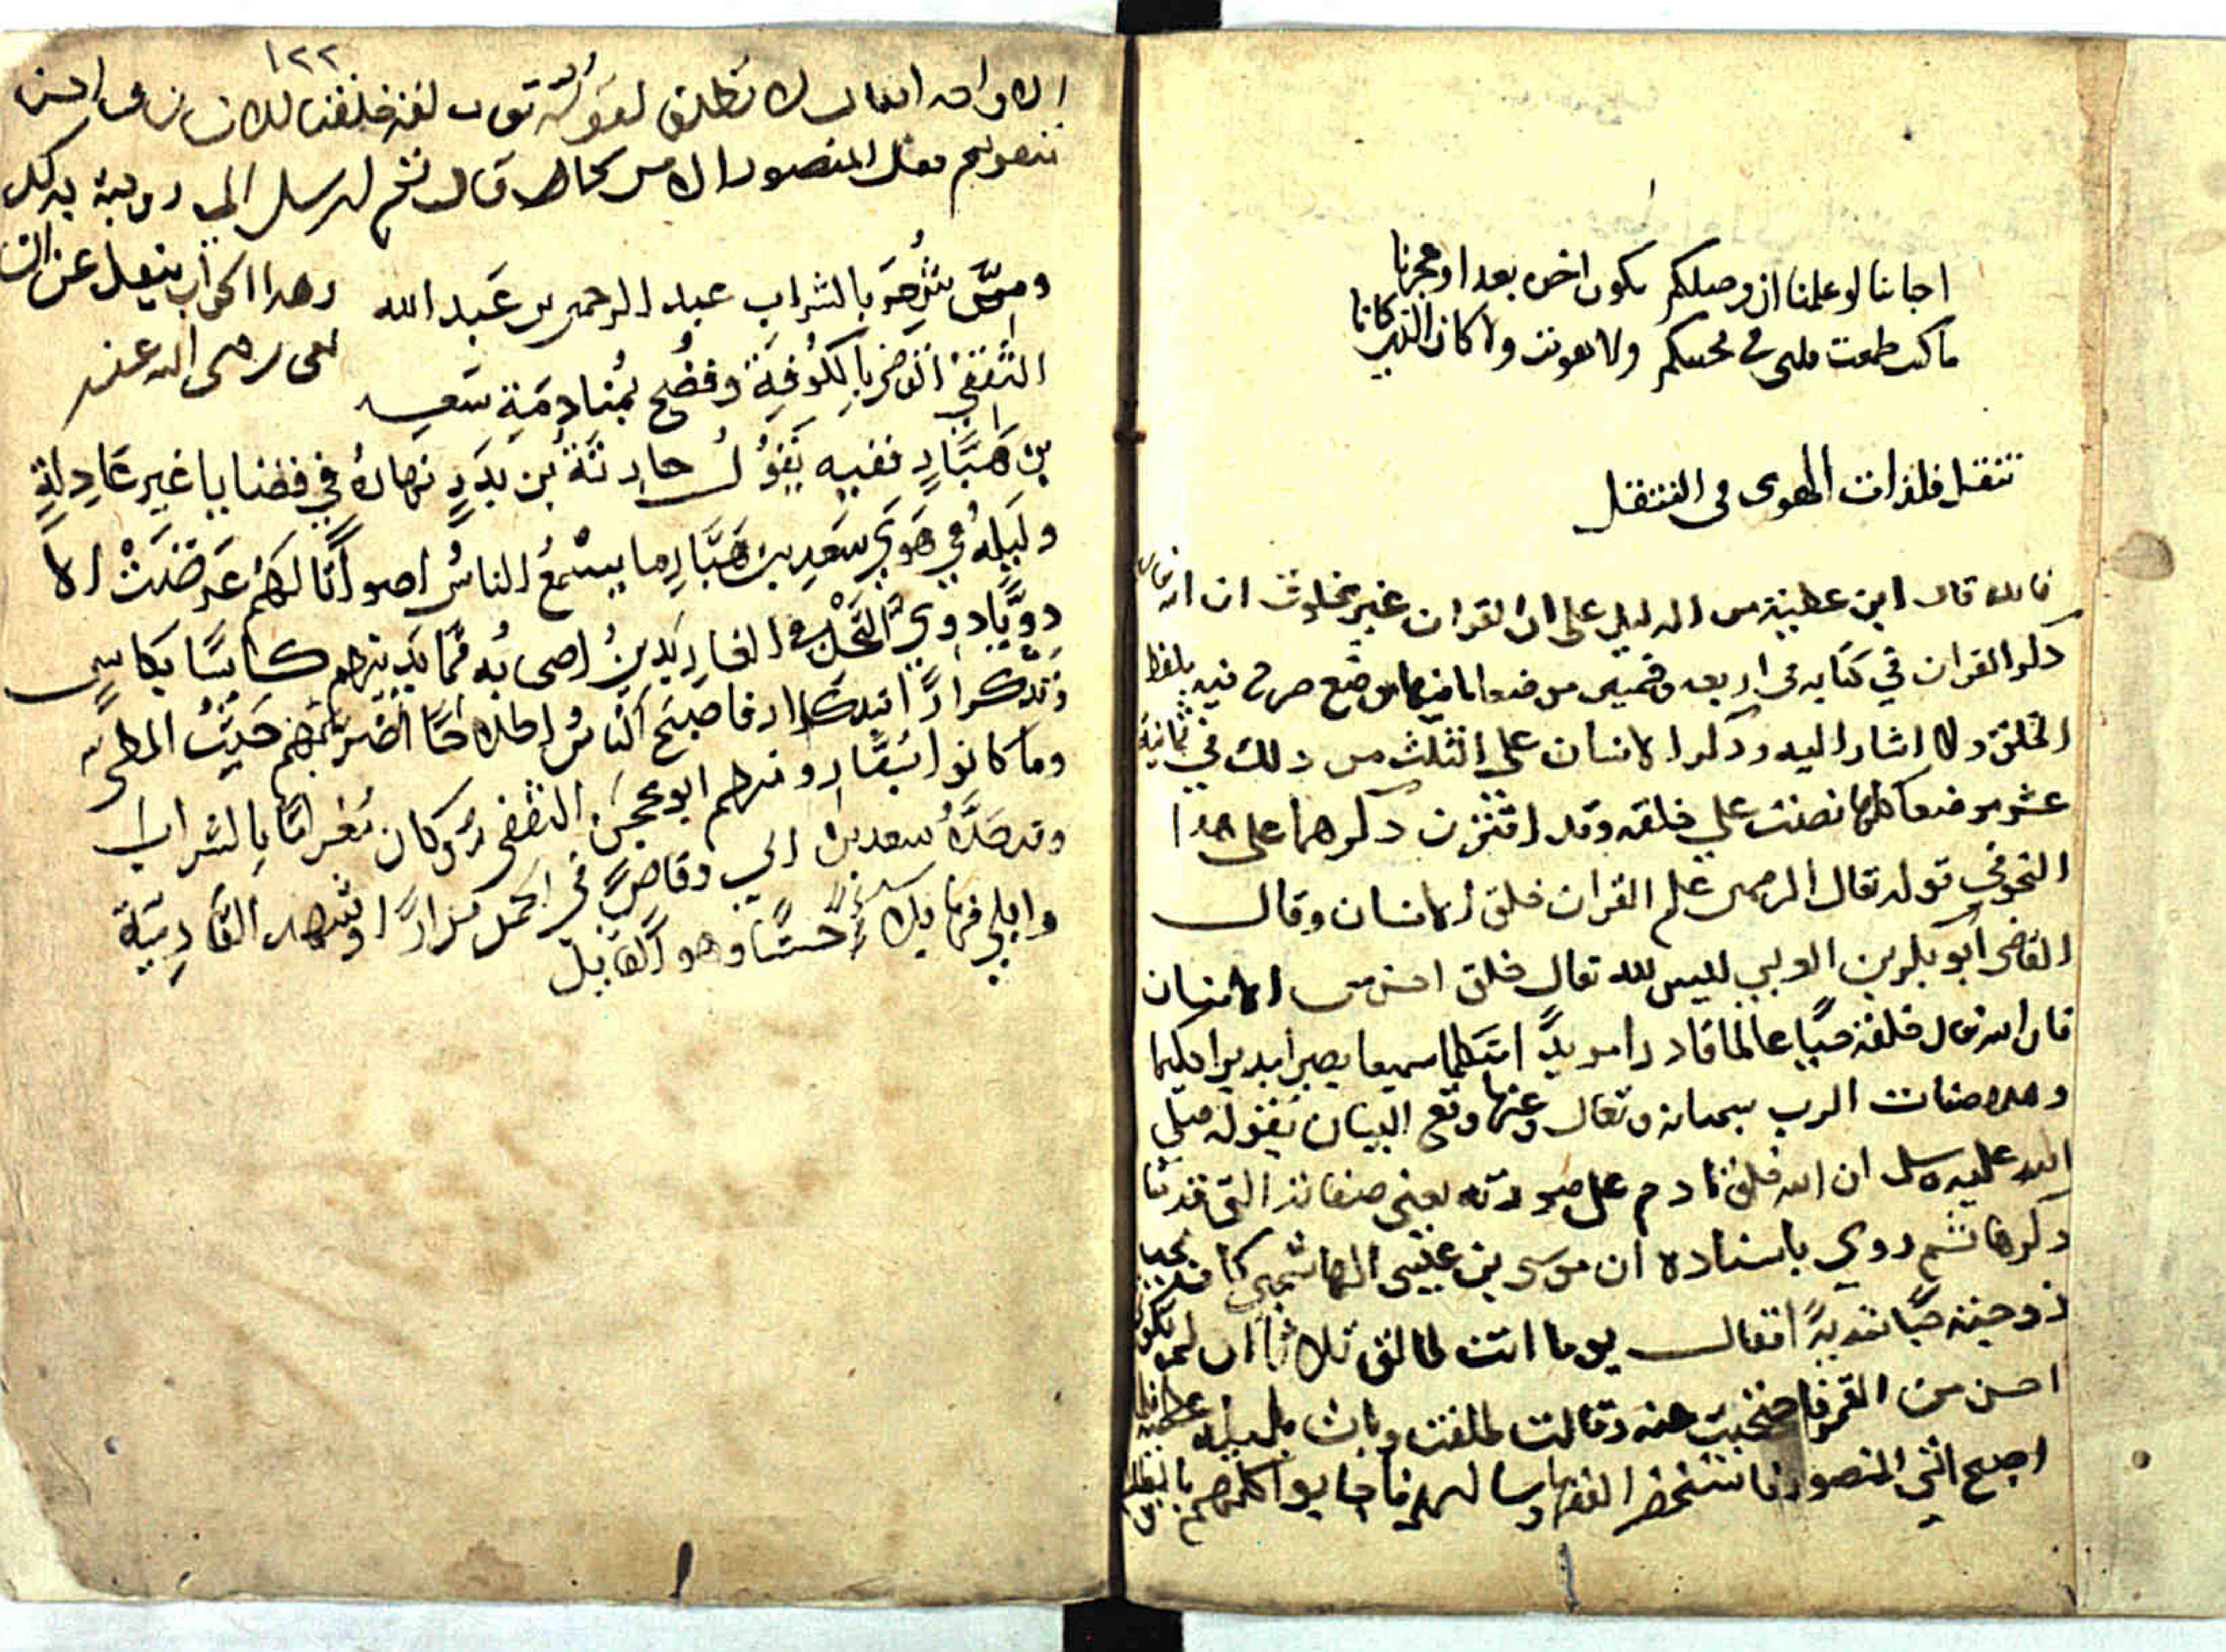 احبابنا لو علمنا ان وصلكم يكون اخره بعدا وهجرانا
ما كنت طمعت قلبى فى محبتكم ولا هويت ولا كان الذى كانا
تنقل فلذات الهوى فى التنقل
فائده قال ابن عطية من الدليل على ان القران غير مخلوق ان الله تعالى
ذكر القران في كتابه في اربعه وخمسين موضعا ما فيها موضع صرح فيه بلفظ
الخلق ولا اشار اليه وذكر الانسان على الثلث من ذلك في ثمانية
عشر موضعا كلها نصت على خلقه وقد اقترن ذكرهما على هذا
النحو في قوله تعالى الرحمن علم القران خلق الانسان وقال
القاضى ابو بكر بن العربي ليس لله تعالى خلق احسن من الانسان
فان الله تعالى خلقه حيًا عالما قادرا مريدًا متكلما سميعا بصيرا مدبرا حكيما
وهذه صفات الرب سبحانه وتعالى وعنها وقع البيان بقوله صلى
الله عليه وسلم ان الله خلق ادم على صورته يعني صفاته التي قدمنا
ذكرها ثم روي باسناده ان موسى بن عيسى الهاشمي كان يحب
زوجته حبًا شديدًا فقال يوما انت طالق ثلاثا ان لم تكوني
احسن من القمر فاحتجبت عنه وقالت طلقت وبات بليلة عظيمة فلما
اصبح اتى المنصور فاستحضر الفقها وسالهم فاجابوا كلهم بالطلاق
١٢٢
الا واحد فقال لا تطلق لقوله تعالى لقد خلقنا الانسان في احسن
تقويم فقال المنصور الامر كما قال ثم ارسل الى زوجته بذلك
وهذا الجواب ينقل عن الشا
فعى رضى الله عنه
وممن شُهر بالشراب عبد الرحمن بن عَبد الله
الثقفي القاضى بالكوفة وفُضح بمُنادمَةِ سَعد
بن هَبَّارٍ ففيه يَقُولُ حارثَةُ بن بَدرٍ نهارُهُ في قضايا غير عَادِلةٍ
وليلُهُ في هَوَى سَعدِ بن هَبَّارِ ما يسْمعُ الناسُ اصواتًا لهُم عَرضَتْ الا
دويًّا دَوِيَّ النَّحْلِ في الغار يَدينُ اصحابُه فيما يَدينهم كاسًا بكاسٍ
وتكرارًا بتكرار فاصبَح النّاسُ اطلاحًا اضرّ بهم حَثُّ المطيّ
وما كانوا بسُفّار ومنهم ابو محجن الثقفى وكان مُغرامًا بالشراب
وقد حَدَّهُ سعد بن ابي وقاصٍ في الخمر مرارًا وشهد القَادسِيّة
وابلى فيها بلاءً حسنًا وهو القائل